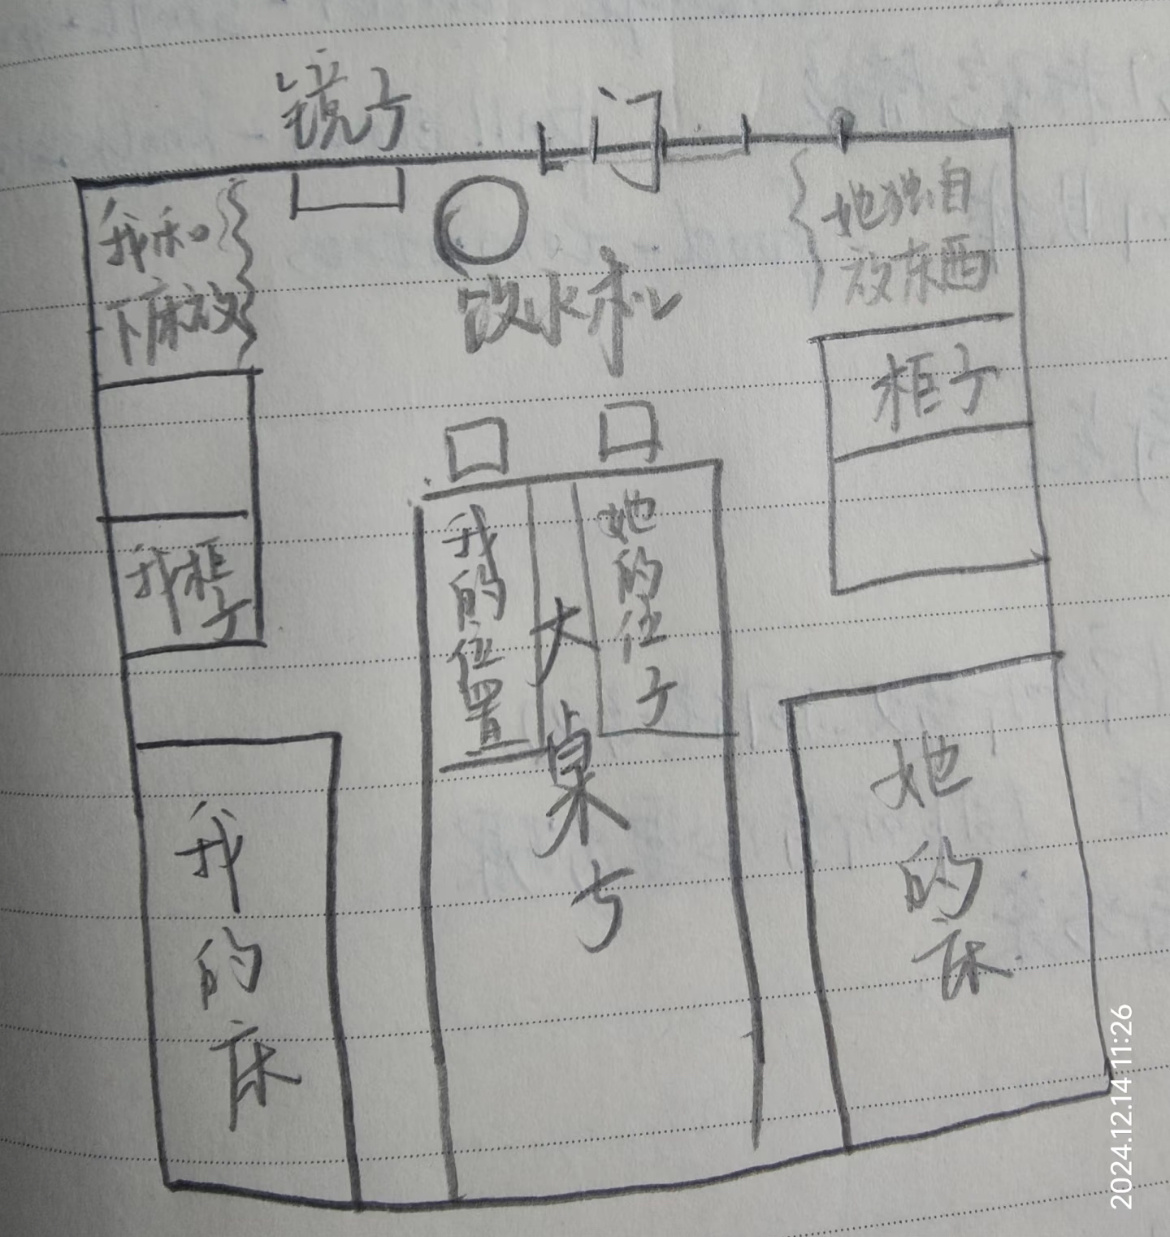 镜子
门
我和
下床放
饮水机
她独自
放东西
柜子
我的位置
大桌子
她的位子
我柜子
我的床
她的床
2024.12.14 11:26